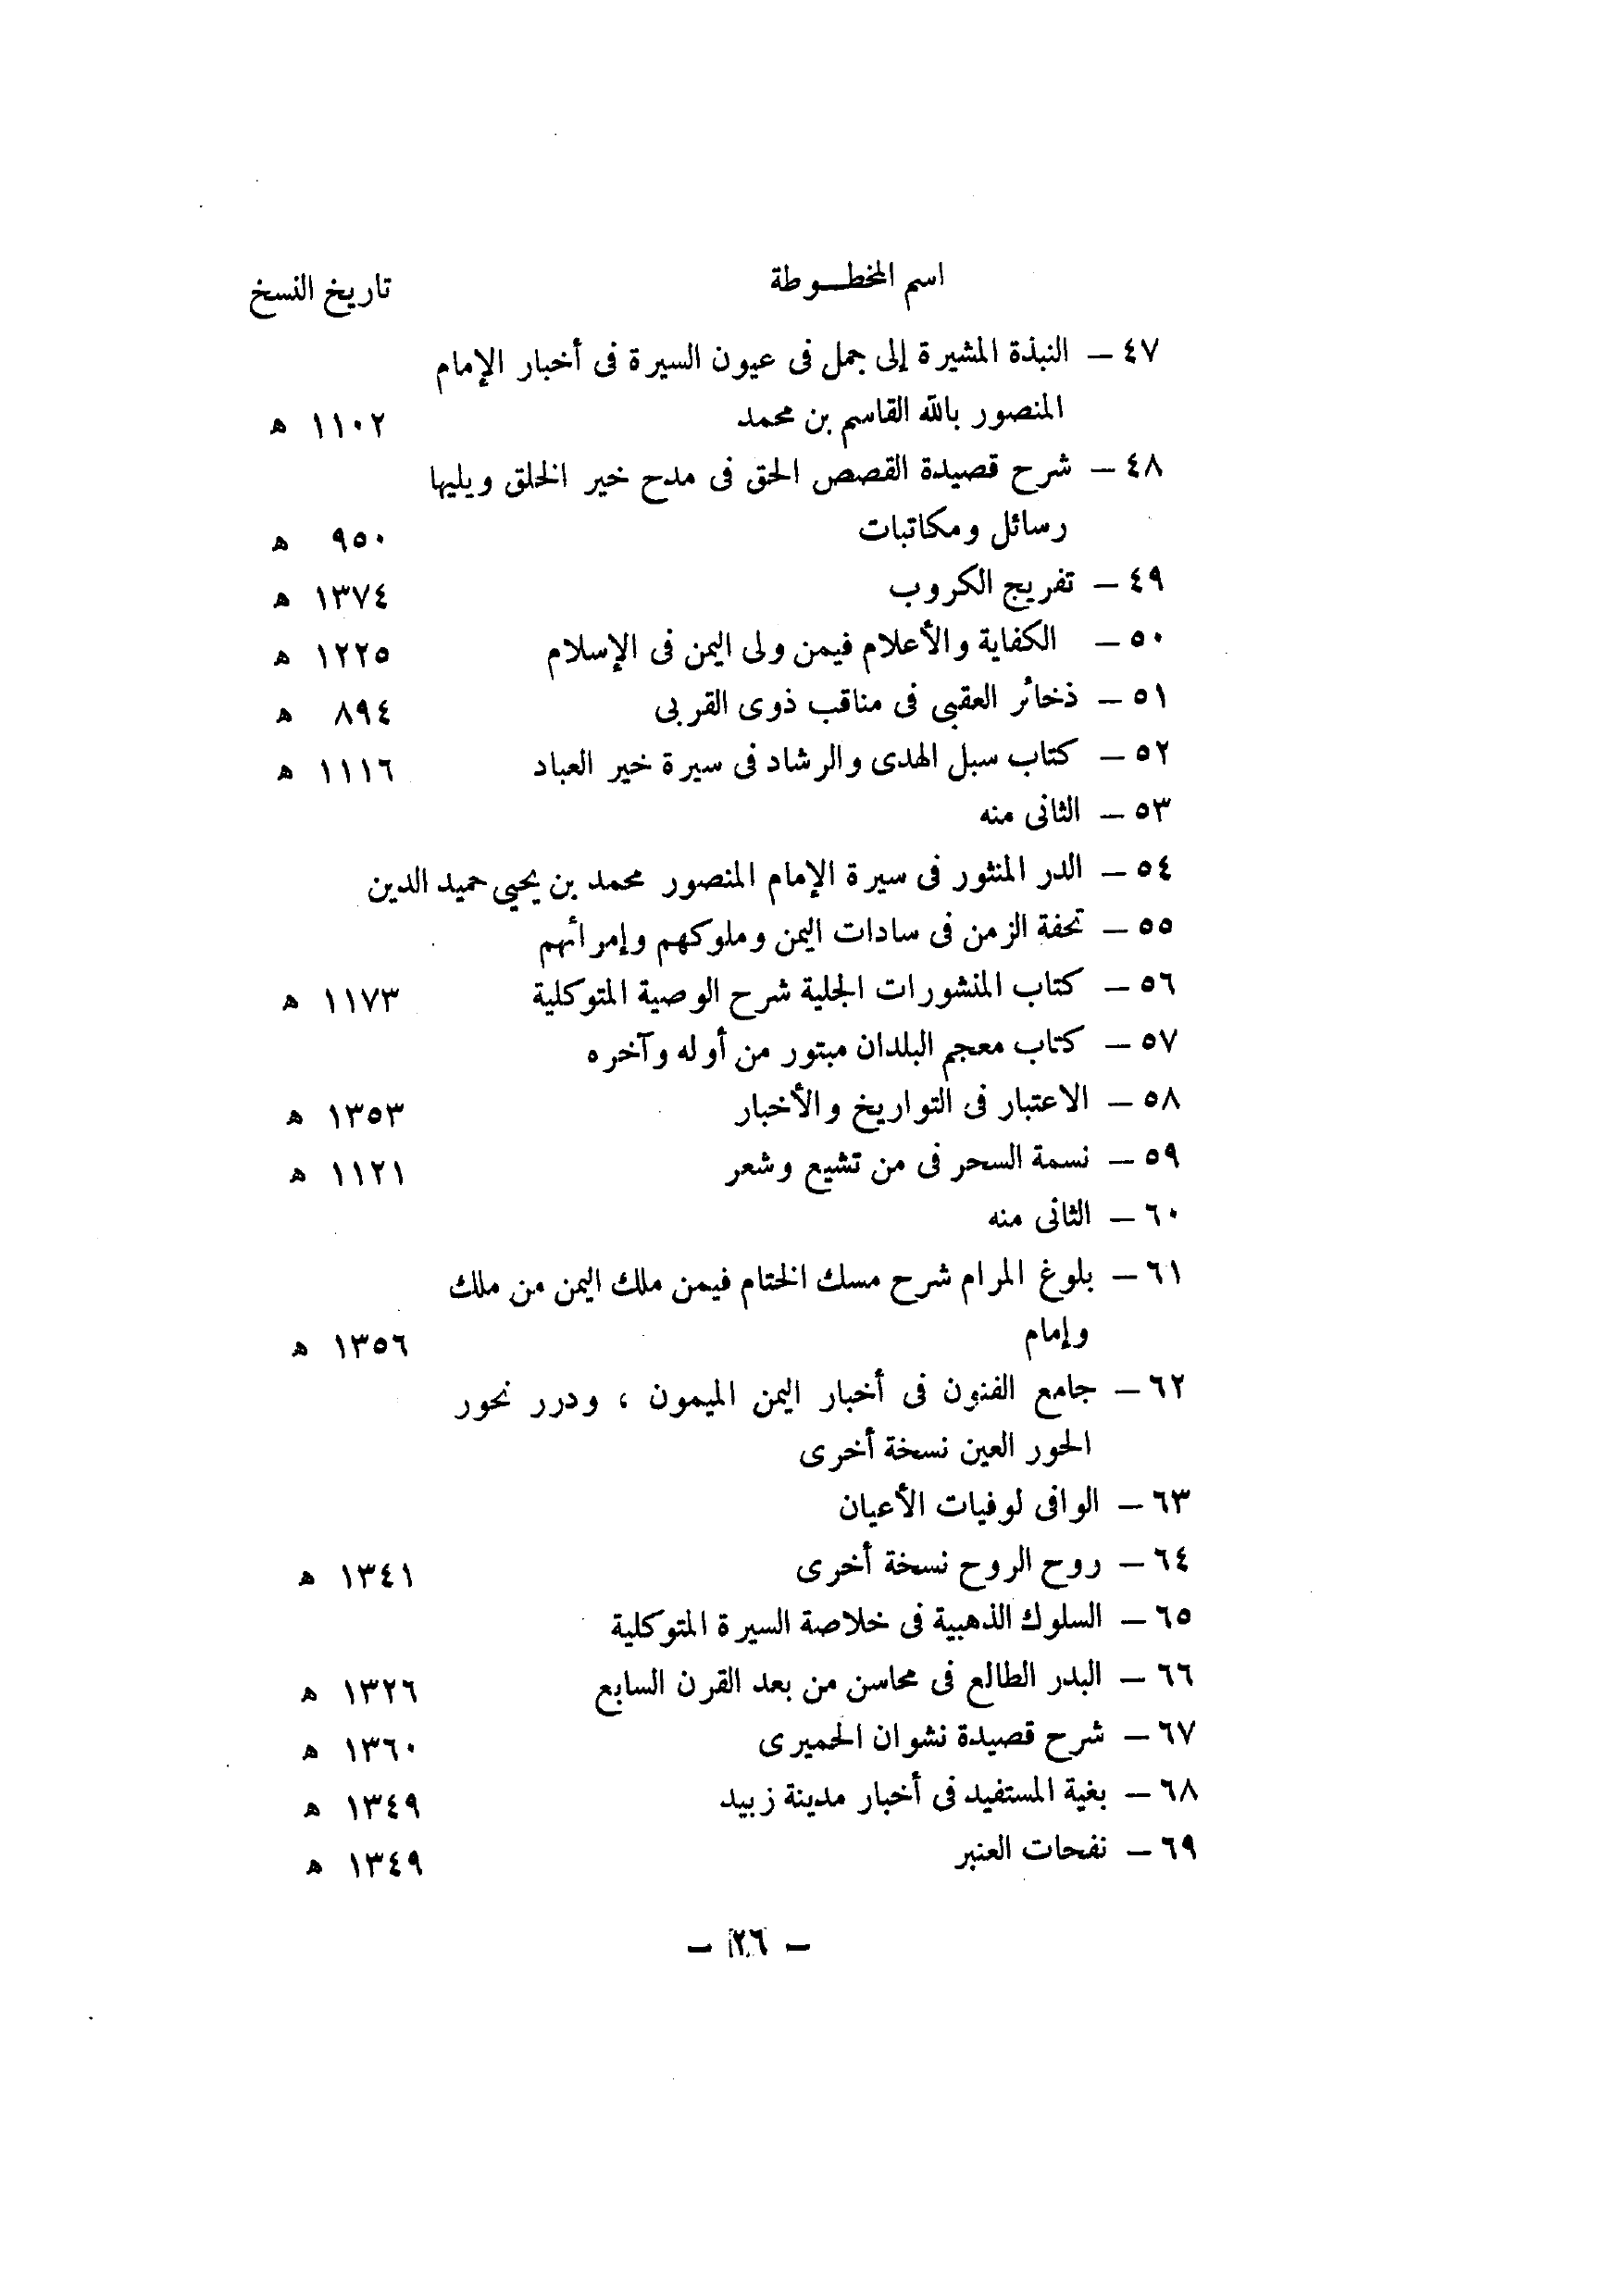 اسم المخطــوطة تاريخ النسخ
٤٧ – النبذة المشيرة إلى جمل فى عيون السيرة فى أخبار الإمام
المنصور بالله القاسم بن محمد ١١٠٢ ه
٤٨ – شرح قصيدة القصص الحق فى مدح خير الخلق ويليها
رسائل ومكاتبات ٩٥٠ ه
٤٩ – تفريج الكروب ١٣٧٤ ه
٥٠ – الكفاية والأعلام فيمن ولى اليمن فى الإسلام ١٢٢٥ ه
٥١ – ذخائر العقبى فى مناقب ذوى القربى ٨٩٤ ه
٥٢ – كتاب سبل الهدى والرشاد فى سيرة خير العباد ١١١٦ ه
٥٣ – الثانى منه
٥٤ – الدر المنثور فى سيرة الإمام المنصور محمد بن يحيى حميد الدين
٥٥ – تحفة الزمن فى سادات اليمن وملوكهم وإمرائهم
٥٦ – كتاب المنشورات الجلية شرح الوصية المتوكلية ١١٧٣ ه
٥٧ – كتاب معجم البلدان مبتور من أوله وآخره
٥٨ – الاعتبار فى التواريخ والأخبار ١٣٥٣ ه
٥٩ – نسمة السحر فى من تشيع وشعر ١١٢١ ه
٦٠ – الثانى منه
٦١ – بلوغ المرام شرح مسك الختام فيمن ملك اليمن من ملك
وإمام ١٣٥٦ ه
٦٢ – جامع الفنون فى أخبار اليمن الميمون ، ودرر نحور
الحور العين نسخة أخرى
٦٣ – الوافى لوفيات الأعيان
٦٤ – روح الروح نسخة أخرى ١٣٤١ ه
٦٥ – السلوك الذهبية فى خلاصة السيرة المتوكلية
٦٦ – البدر الطالع فى محاسن من بعد القرن السابع ١٣٢٦ ه
٦٧ – شرح قصيدة نشوان الحميرى ١٣٦٠ ه
٦٨ – بغية المستفيد فى أخبار مدينة زبيد ١٣٤٩ ه
٦٩ – نفحات العنبر ١٣٤٩ ه
– ٢٦ –